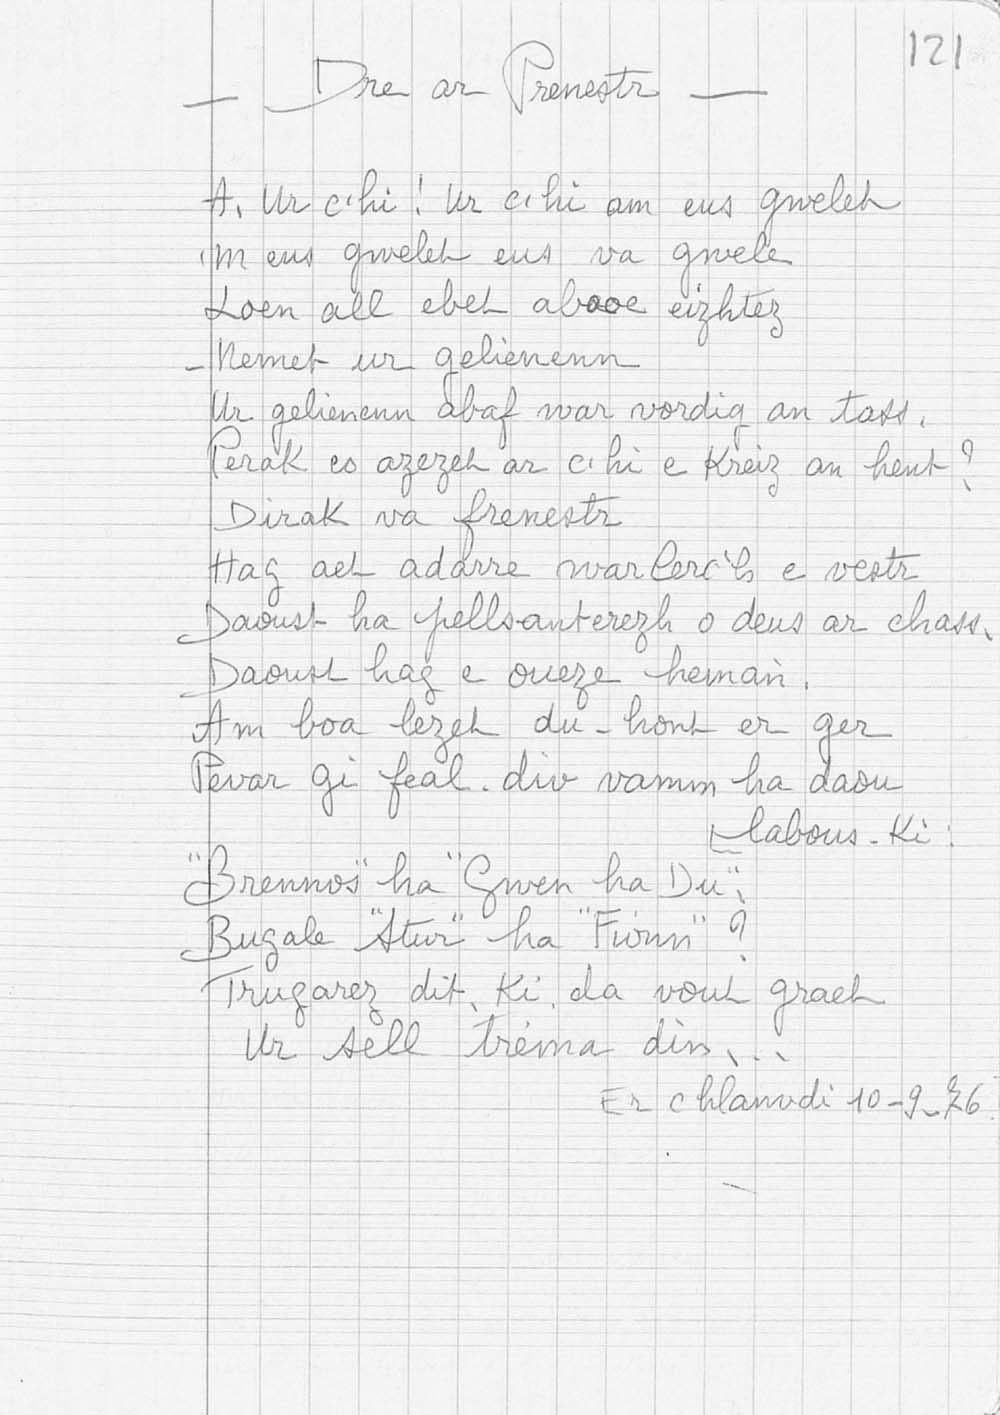 121
— Dre ar Prenestr —
A, Ur c'hi ! Ur c'hi am eus gwelet
'm eus gwelet eus va gwele
Loen all ebet abaoe eizhtez
- Nemet ur gelienenn
Ur gelienenn abaf war vordig an tass.
Perak eo azezet ar c'hi e Kreiz an hent ?
Dirak va frenestr
Hag aet adarre warlerc'h e vestr
Daoust ha pellsanterezh o deus ar chass.
Daoust hag e oueze hemañ.
Am boa lezet du-hont er ger
Pevar gi feal. div vamm ha daou
labous-Ki :
"Brennos" ha "Gwen ha Du",
Bugale "Stur" ha "Fionn" ?
Trugarez dit, Ki, da vout graet
Ur sell trema din...
Er c'hlanvdi 10-9-76